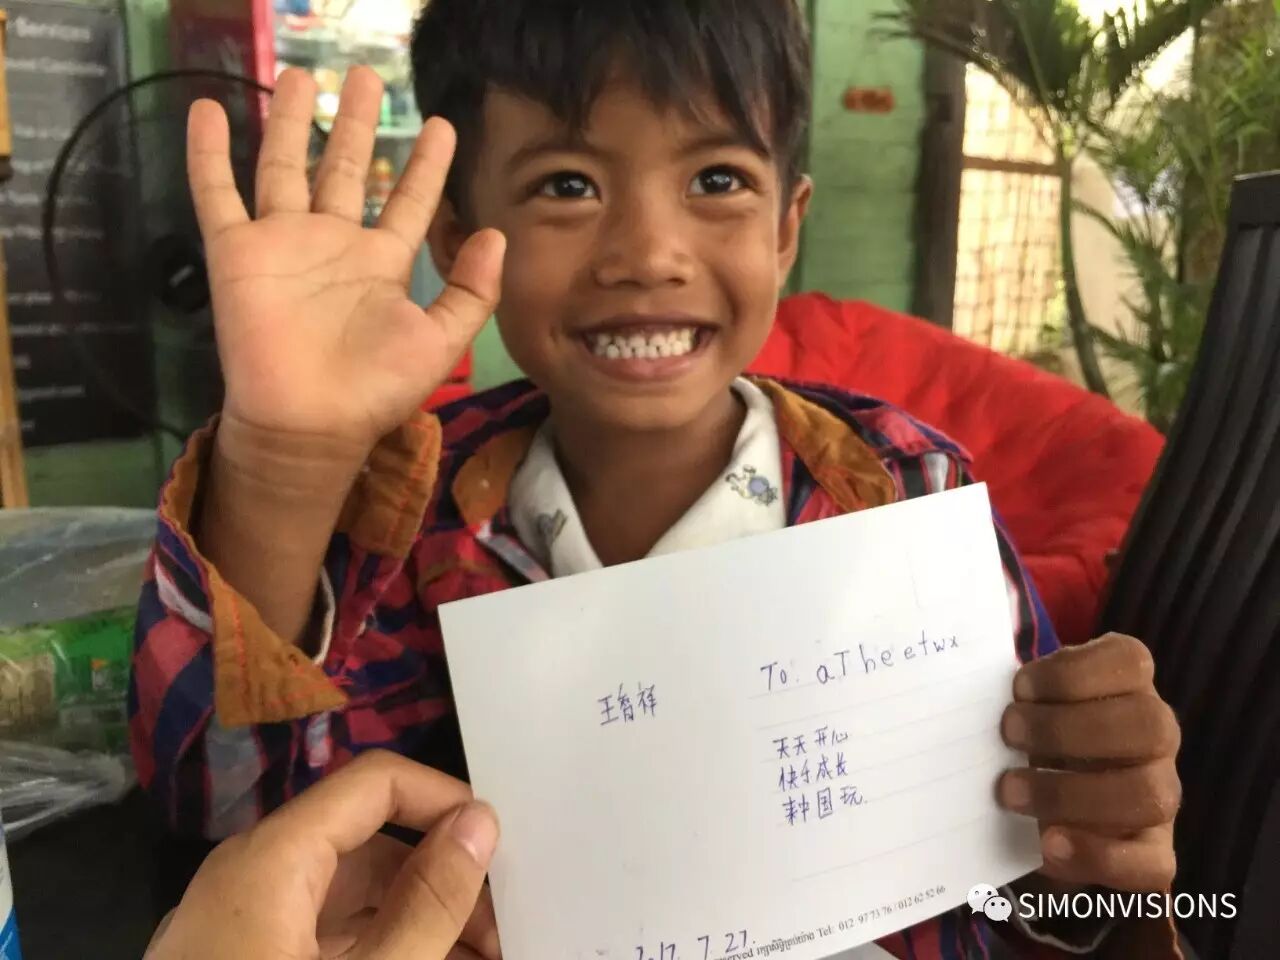 Services
王智祥
To: aTheetwx
天天开心
快乐成长
来中国玩.
2017. 7. 27.
Tel: 012 97 73 76 / 012 62 52 66
SIMONVISIONS